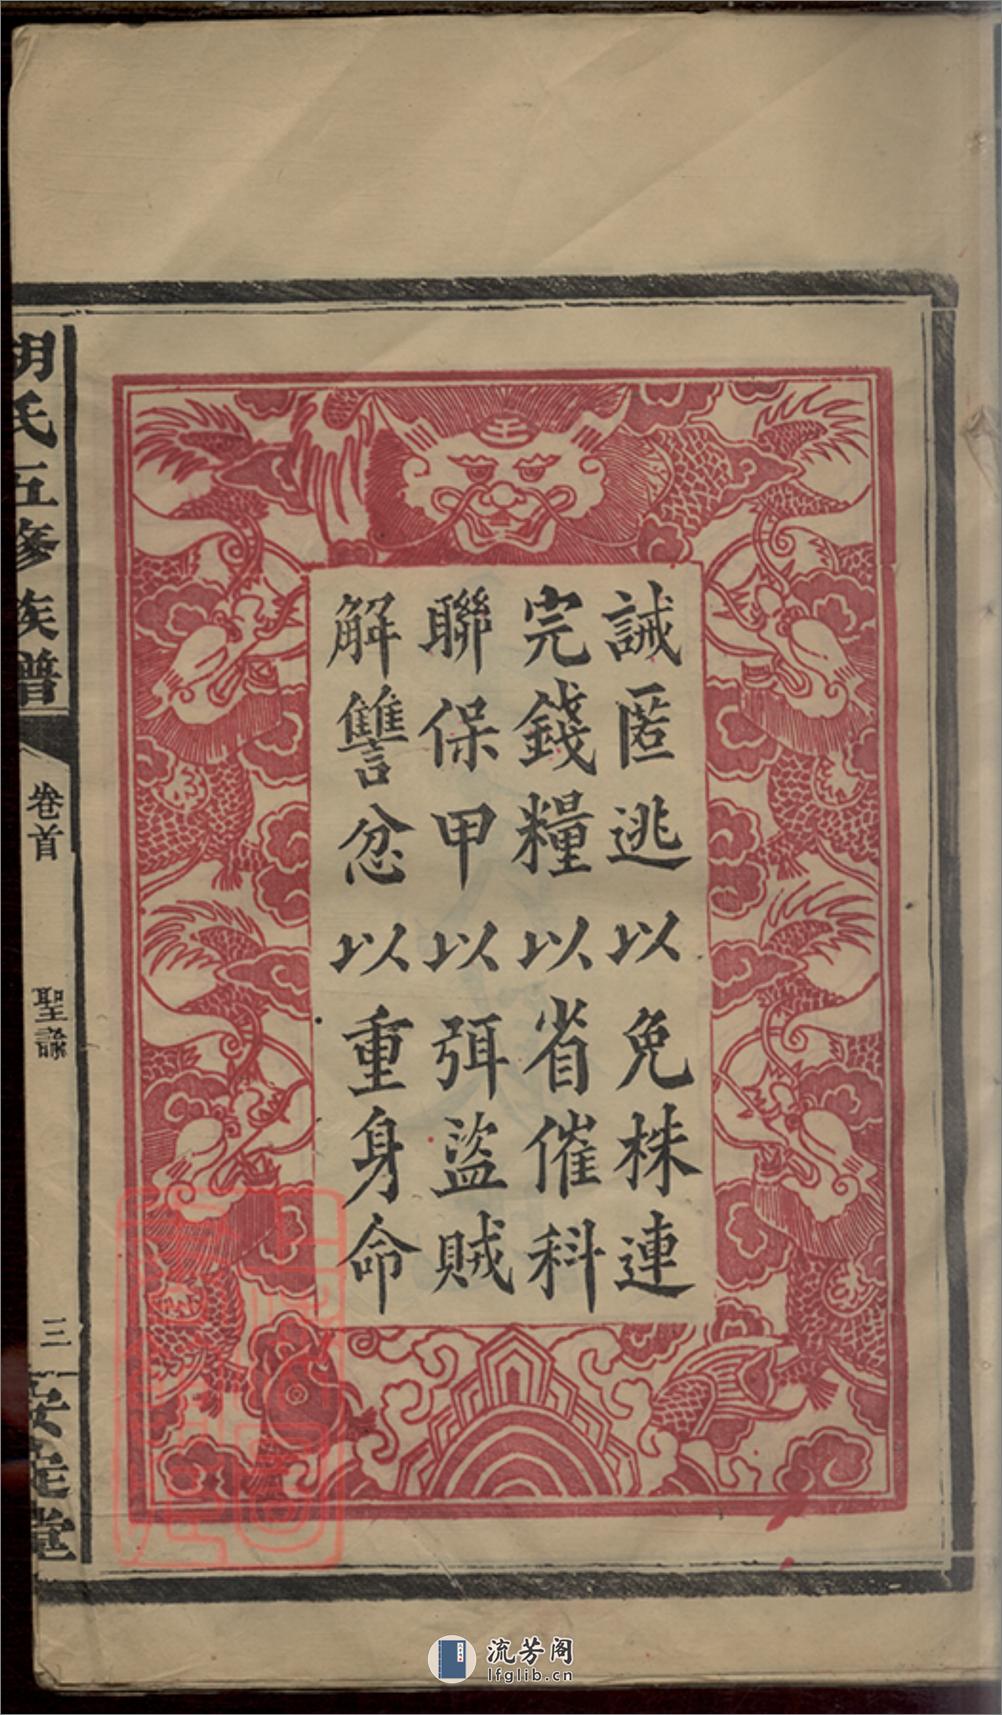 誡匿逃以免株連
完錢糧以省催科
聯保甲以弭盜賊
解讐忿以重身命
胡氏五修族譜
卷首
聖諭
三
安定堂
流芳阁
lfglib.cn